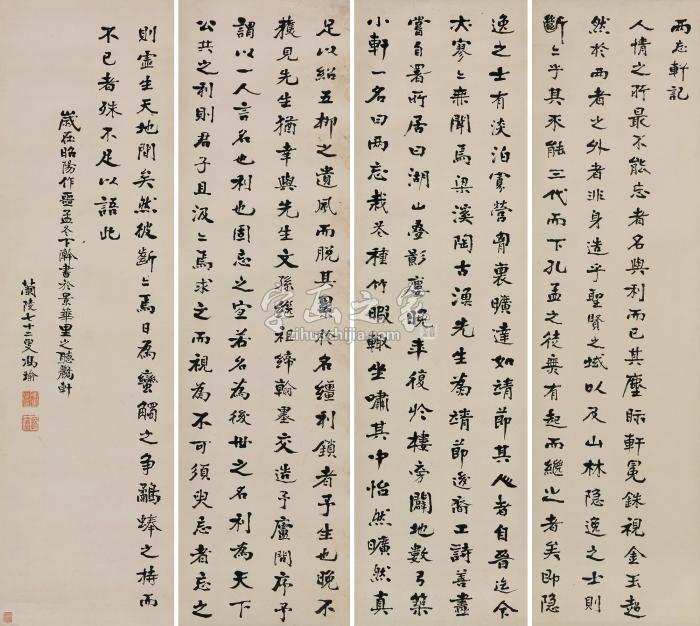 兩忘軒記
人情之所最不能忘者名與利而已其塵眎軒冕銖視金玉超
然於兩者之外者非身造乎聖賢之域以及山林隱逸之士則
斷斷乎其不能三代而下孔孟之徒無有起而繼之者矣即隱
逸之士有淡泊寡營胷裏曠達如靖節其人者自晉迄今
大寥寥無聞焉梁溪陶古漁先生為靖節後裔工詩善畫
嘗自署所居曰湖山疊影廬晚年復於樓旁闢地數弓築
小軒一名曰兩忘栽花種竹暇輒坐嘯其中怡然曠然真
足以紹五柳之遺風而脫其累於名韁利鎖者予生也晚不
獲見先生猶幸與先生文孫繼祖締翰墨交造予廬問序予
謂以一人言名也利也固忘之宜若名為後世之名利為天下
公共之利則君子且汲汲焉求之而視為不可須臾忘者忘之
則虛生天地間矣然彼斷斷焉日為蠻觸之爭鷸蚌之持而
不已者殊不足以語此
歲在昭陽作噩孟冬下澣書於景華里之聽鸝軒
蘭陵七十二叟馮瑜
字画之家
zihuazhijia.com